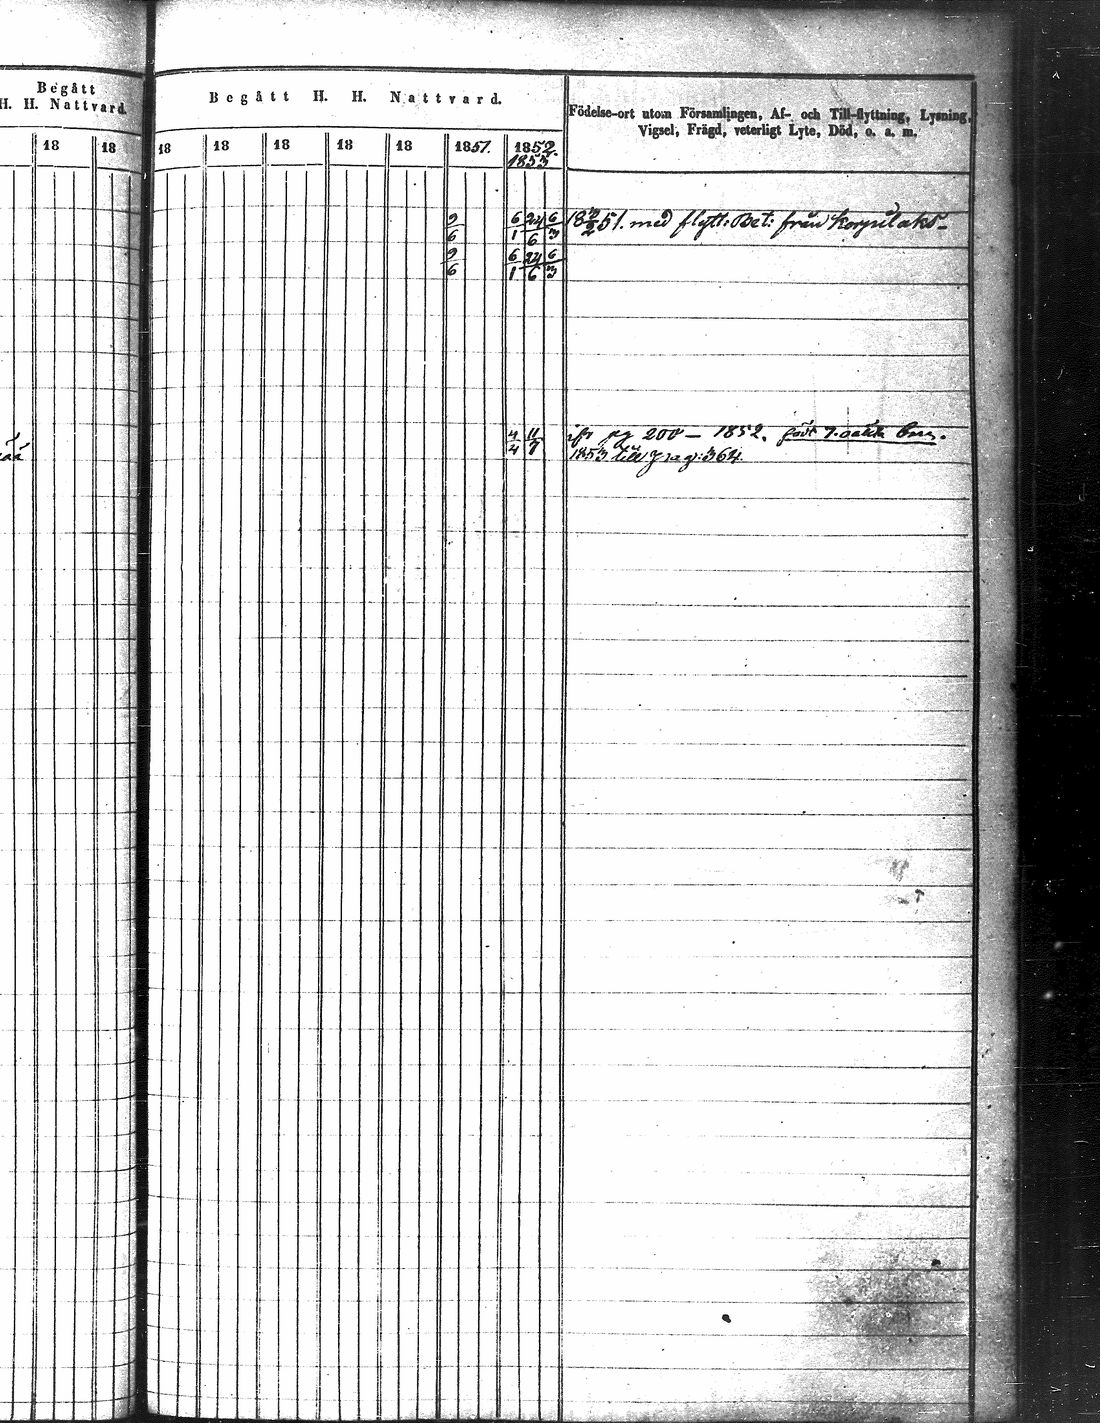 Begått
H. H. Nattvard.
18 18
Begått H. H. Nattvard.
18 18 18 18 18 1851. 1852.
1853
Födelse-ort utom Församlingen, Af- och Till-flyttning, Lysning,
Vigsel, Frägd, veterligt Lyte, Död, o. a. m.
9/6 6/1 24/6 6/3 18 2/2 51. med flytt: Bet: från Korpilaks-
9/6 6/1 24/6 6/3
4/4 11/7 ifr pg 200 – 1852.
1853 till pag: 364.